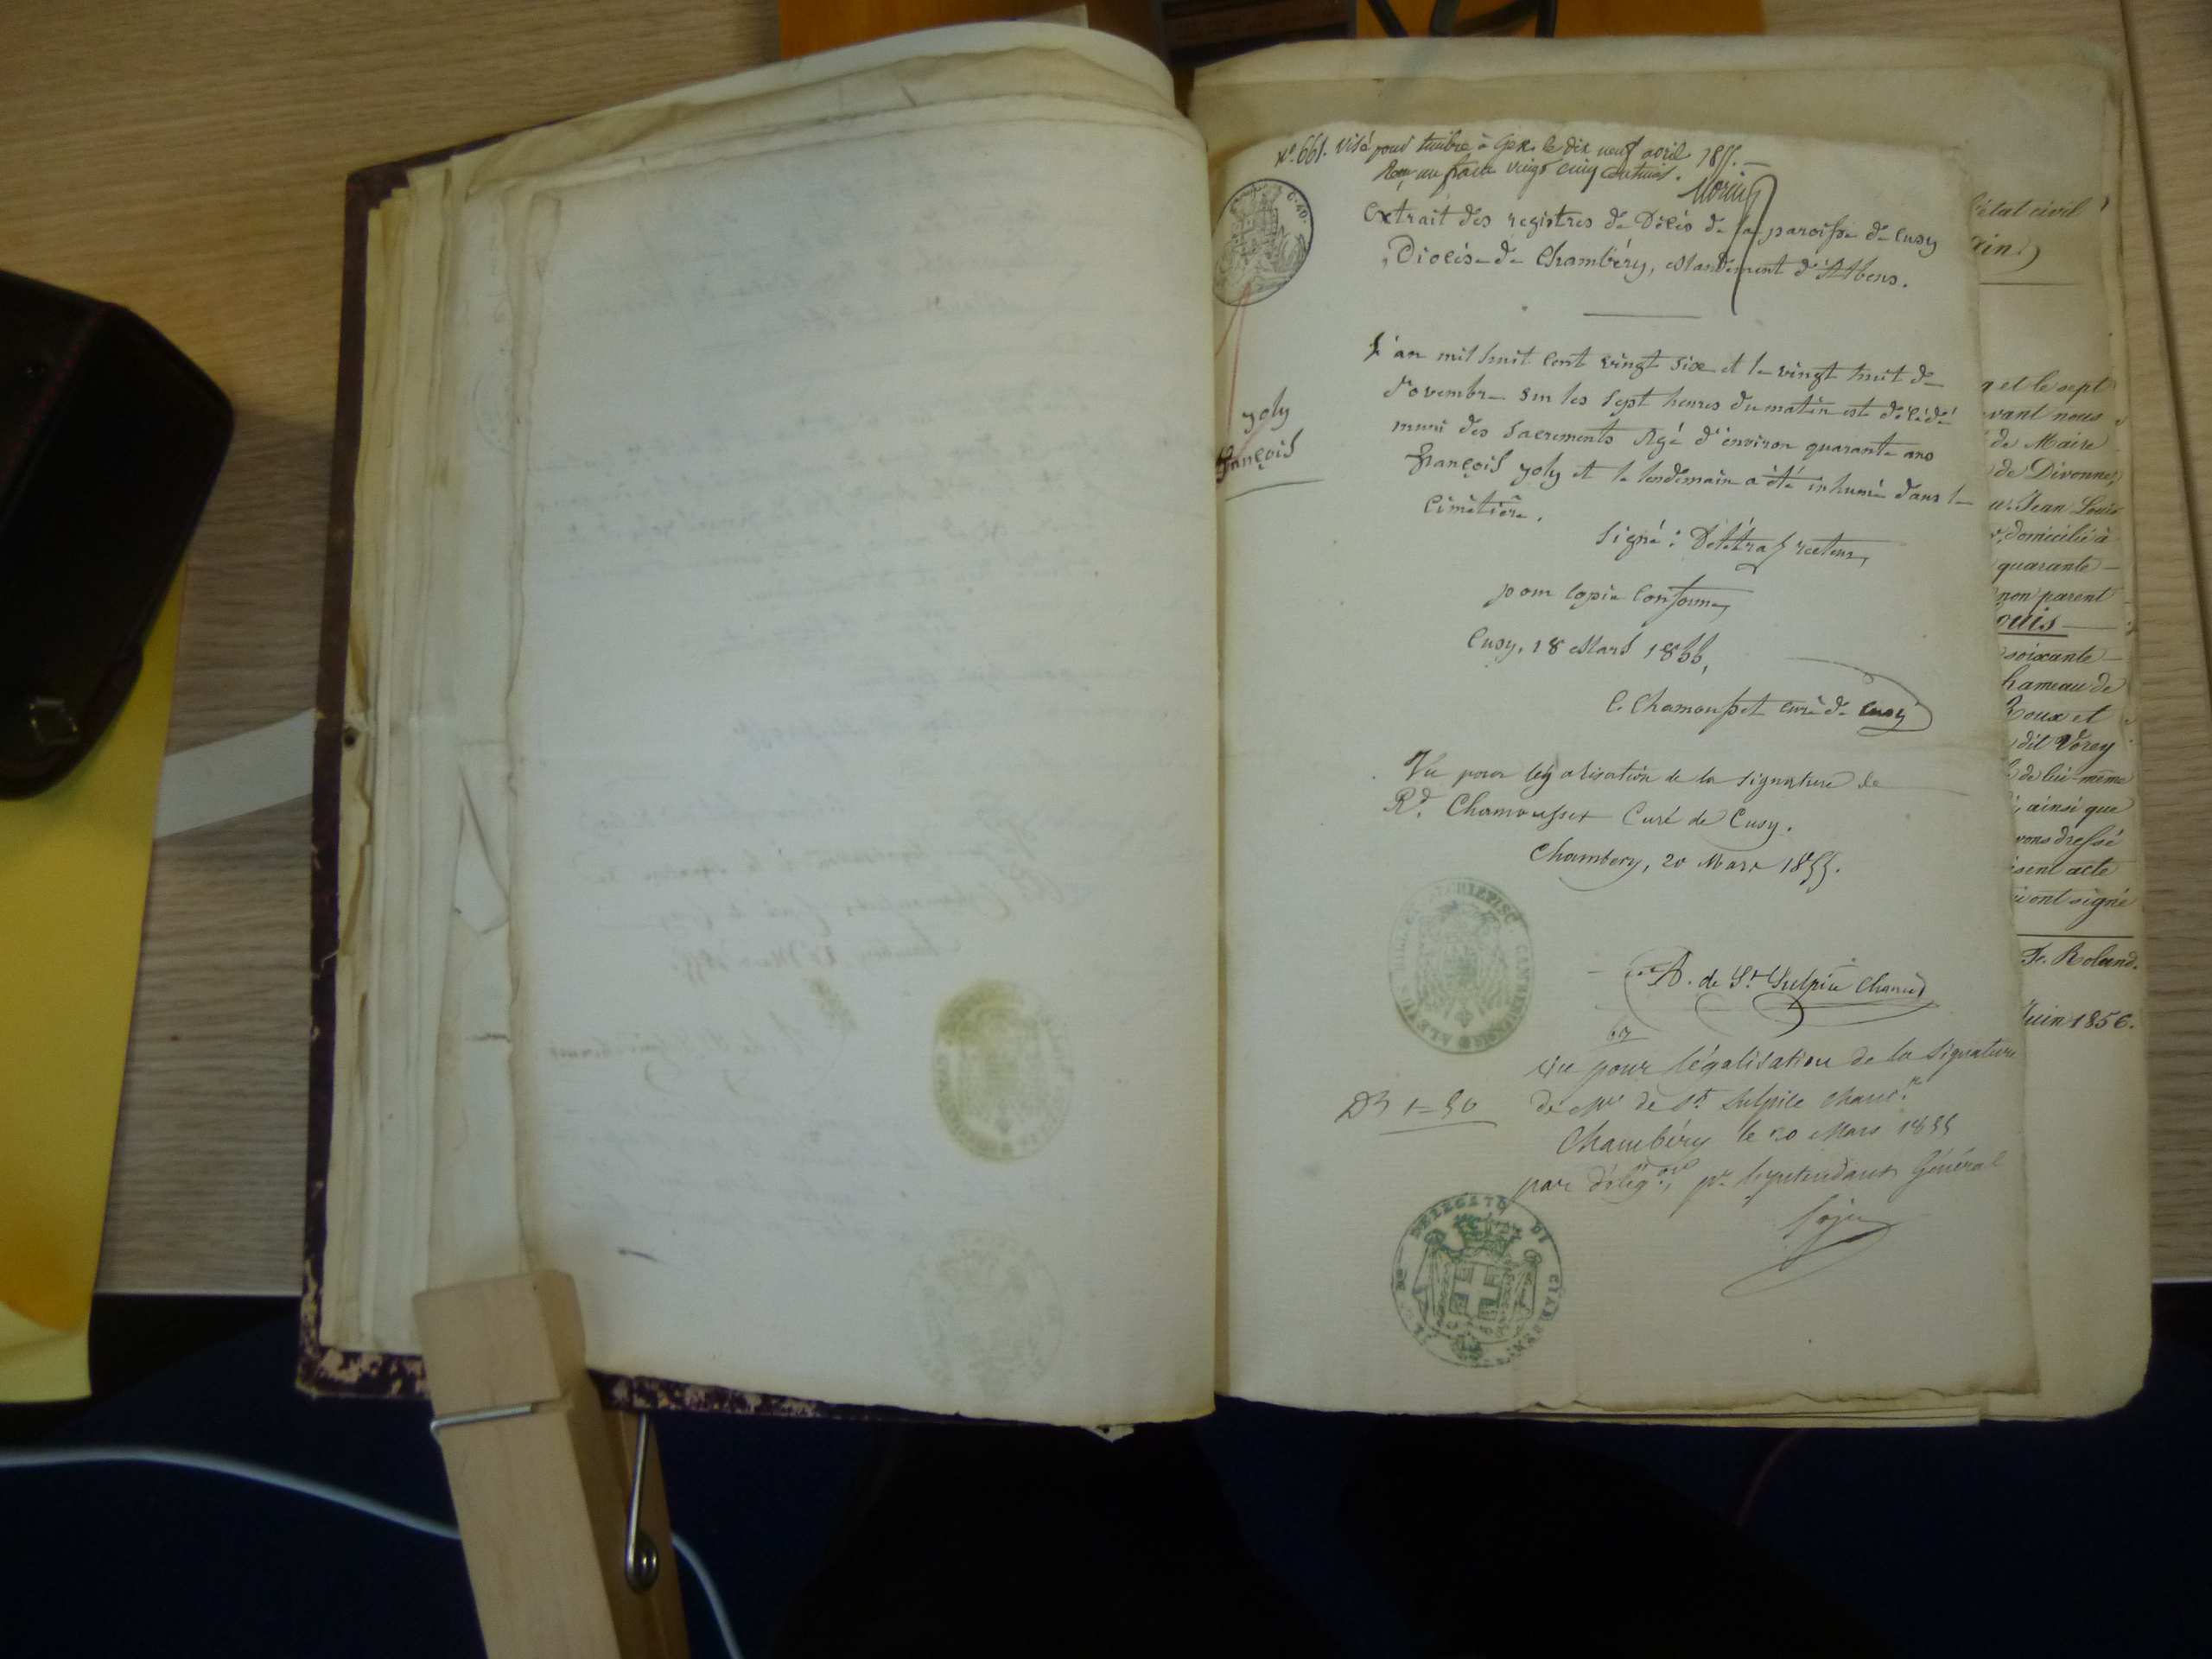 N.º 661. visé pour timbre à Gex le dix neuf avril 1855.
Reçu un franc vingt cinq centimes.
C. 40.
Extrait des registres de Décès de la paroisse de Cusy
Diocèse de Chambéry, Mandement d'Albens.
L'an mil huit cent vingt six et le vingt huit de
Novembre sur les sept heures du matin est décédé
muni des Sacrements Agé d'environ quarante ans
joly
françois
françois joly et le lendemain a été inhumé dans le
Cimètière.
Signé: Délétraz recteur,
pour Copie Conforme,
Cusy, 18 Mars 1855,
C. Chamousset curé de Cusy
Vu pour légalisation de la signature de
Rd. Chamousset Curé de Cusy.
Chambery, 20 Mars 1855.
A. de St Sulpice Chanc
vu pour légalisation de la signature
de Mr de St Sulpice Chanc.r
D 1=50
Chambéry le 20 Mars 1855
par délég.on, pr l'Intendant Général
DELEGATO DI CIAMBERI
l'état civil
Ain)
et le sept
vant nous
de Maire
de Divonne,
Jean Louis
domicilié à
quarante
non parent
ouis
soixante
hameau de
Roux et
dit Vorey
de lui-même
ainsi que
vons dressé
sent acte
ont signé
Fs. Roland.
Juin 1856.